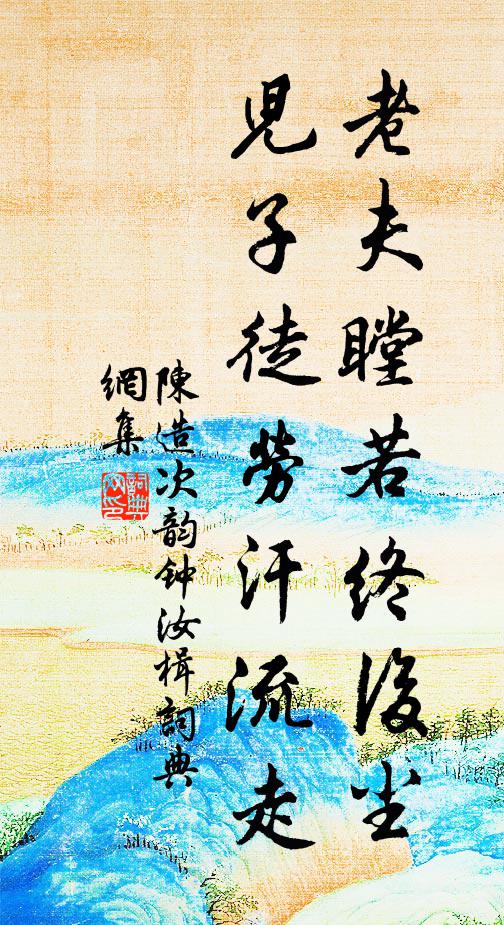 老夫瞠若終後塵
児子徒勞汗流走
陳造次韵钟汝楫詞典
網集
詞典